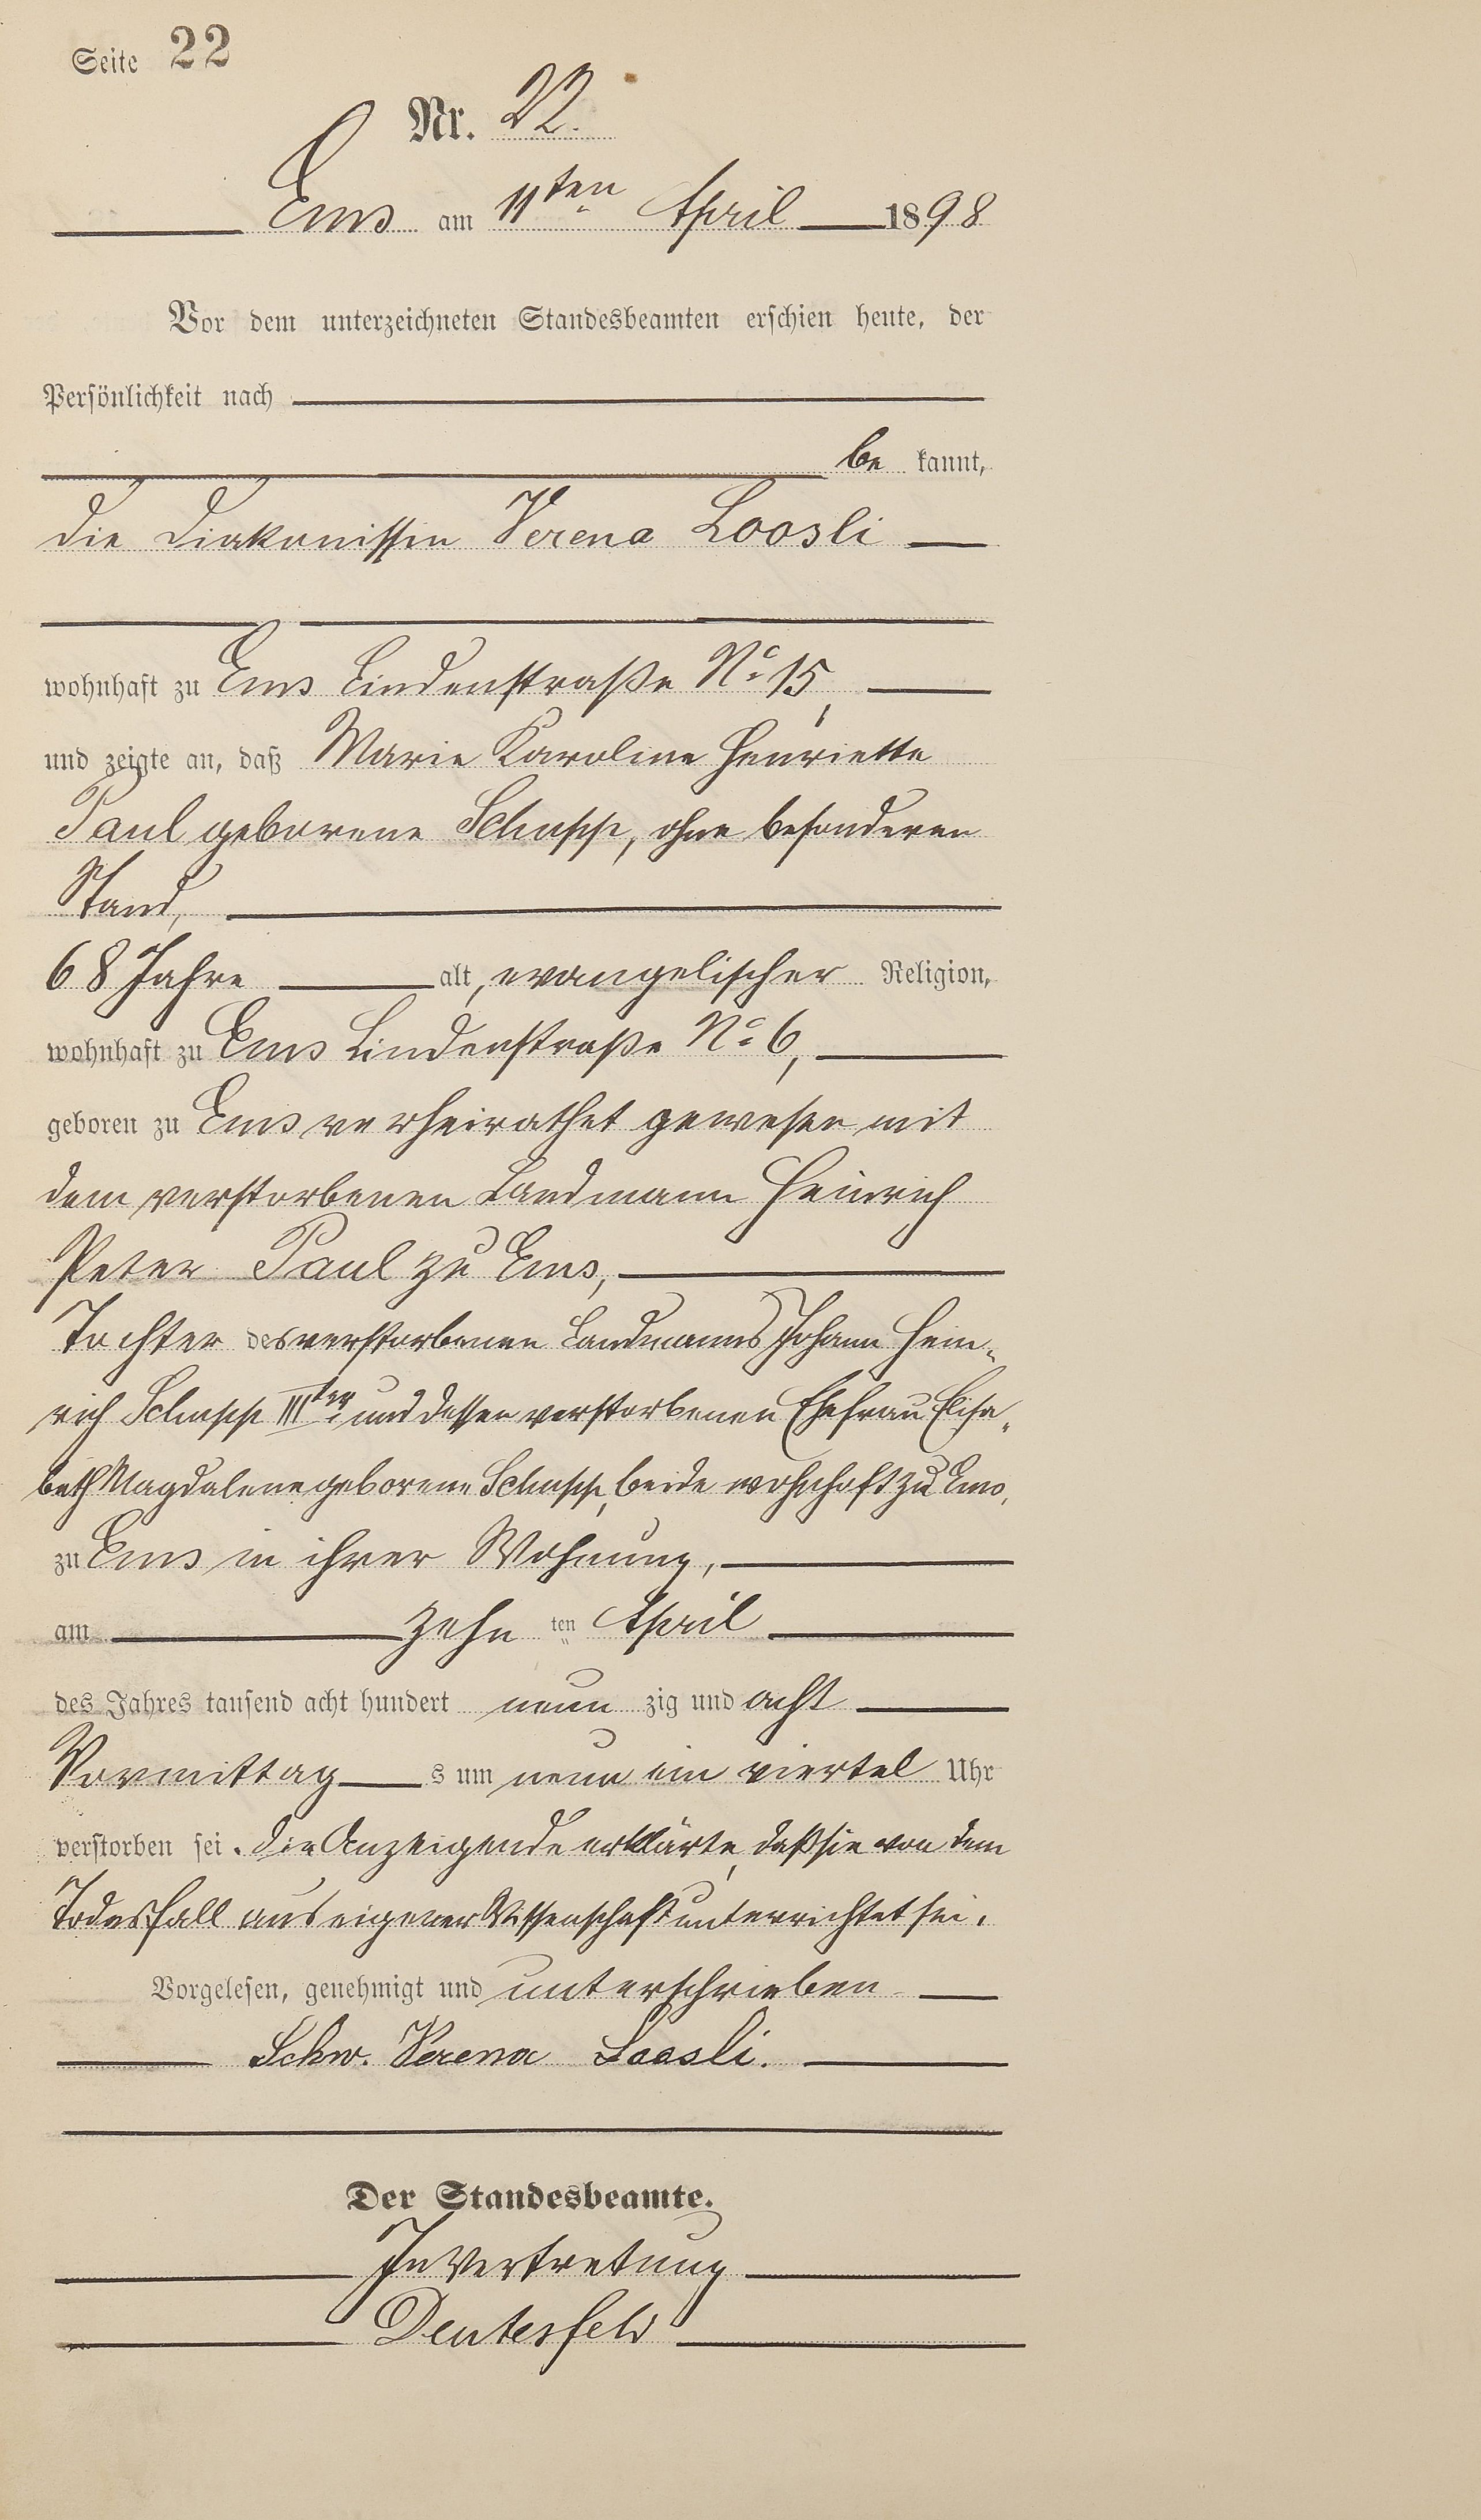 Seite 22
Nr. 22.
Ems am 11ten April 1898
Vor dem unterzeichneten Standesbeamten erschien heute, der
Persönlichkeit nach
be kannt,
die Diakonissin Verena Loosli
wohnhaft zu Ems Lindenstraße No 15,
und zeigte an, daß Marie Karoline Henriette
Paul geborene Schupp, ohne besonderen
Stand,
68 Jahre alt, evangelischer Religion,
wohnhaft zu Ems Lindenstraße No 6,
geboren zu Ems verheirathet gewesen mit
dem verstorbenen Landmann Heinrich
Peter Paul zu Ems,
Tochter des verstorbenen Landmanns Johann Hein-
rich Schupp IIIter und dessen verstorbenen Ehefrau Elisa-
beth Magdalene geborene Schupp, beide wohnhaft zu Ems,
zu Ems in ihrer Wohnung,
am zehn ten April
des Jahres tausend acht hundert neun zig und acht
Vormittag s um neun ein viertel Uhr
verstorben sei. Die Anzeigende erklärte, daß sie von dem
Todesfall aus eigener Wissenschaft unterrichtet sei.
Vorgelesen, genehmigt und unterschrieben
Schw. Verena Loosli.
Der Standesbeamte.
In Vertretung
Deutesfeld